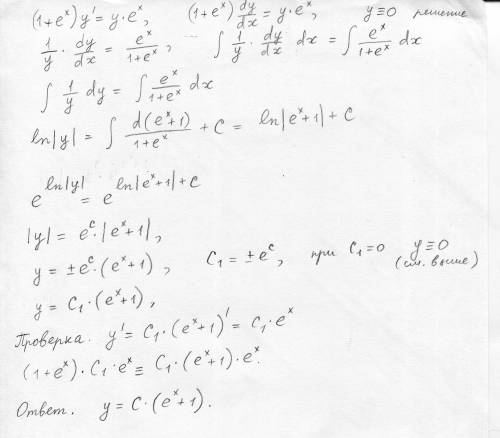 (1+eˣ) y' = y·eˣ, (1+eˣ) dy/dx = y·eˣ, y≡0 решение
1/y · dy/dx = eˣ/(1+eˣ), ∫ 1/y · dy/dx dx = ∫ eˣ/(1+eˣ) dx
∫ 1/y dy = ∫ eˣ/(1+eˣ) dx
ln|y| = ∫ d(eˣ+1)/(1+eˣ) + C = ln|eˣ+1| + C
e^(ln|y|) = e^(ln|eˣ+1|+C)
|y| = eᶜ·|eˣ+1|,
y = ±eᶜ·(eˣ+1), C₁ = ±eᶜ, при C₁=0 y≡0
(см. выше)
y = C₁·(eˣ+1),
Проверка. y' = C₁·(eˣ+1)' = C₁·eˣ
(1+eˣ)·C₁·eˣ ≡ C₁·(eˣ+1)·eˣ.
Ответ. y = C·(eˣ+1).